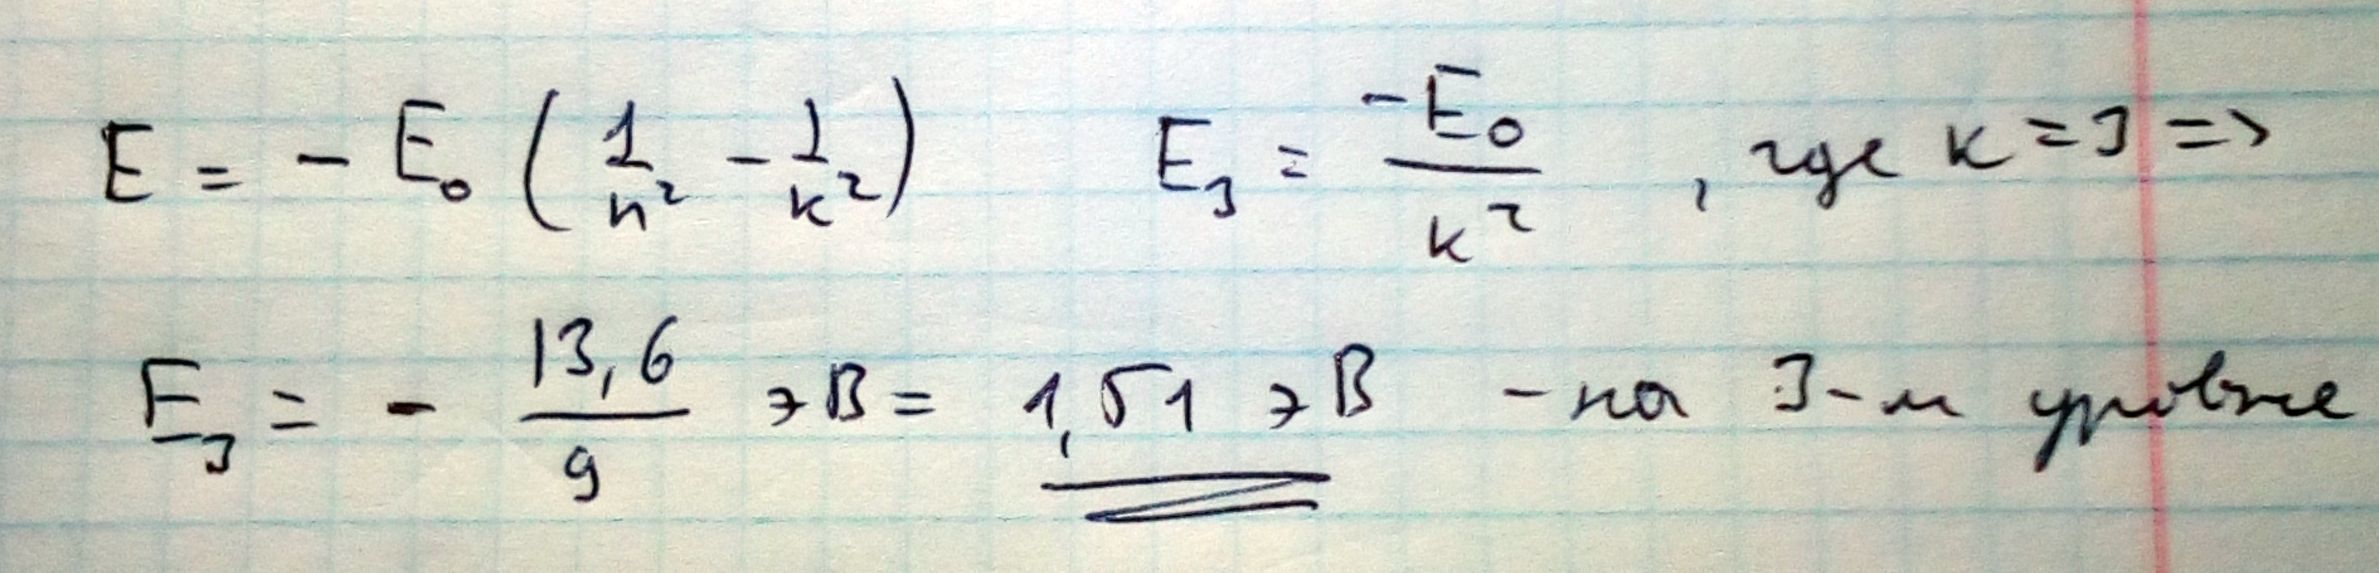 E = - E₀ (1/n² - 1/k²) E₃ = -E₀/k² , где k = 3 =>
E₃ = - 13,6/9 эВ = 1,51 эВ - на 3-м уровне